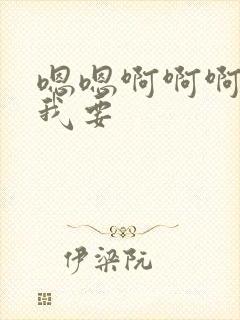 嗯嗯啊啊啊
我要
伊梁阮